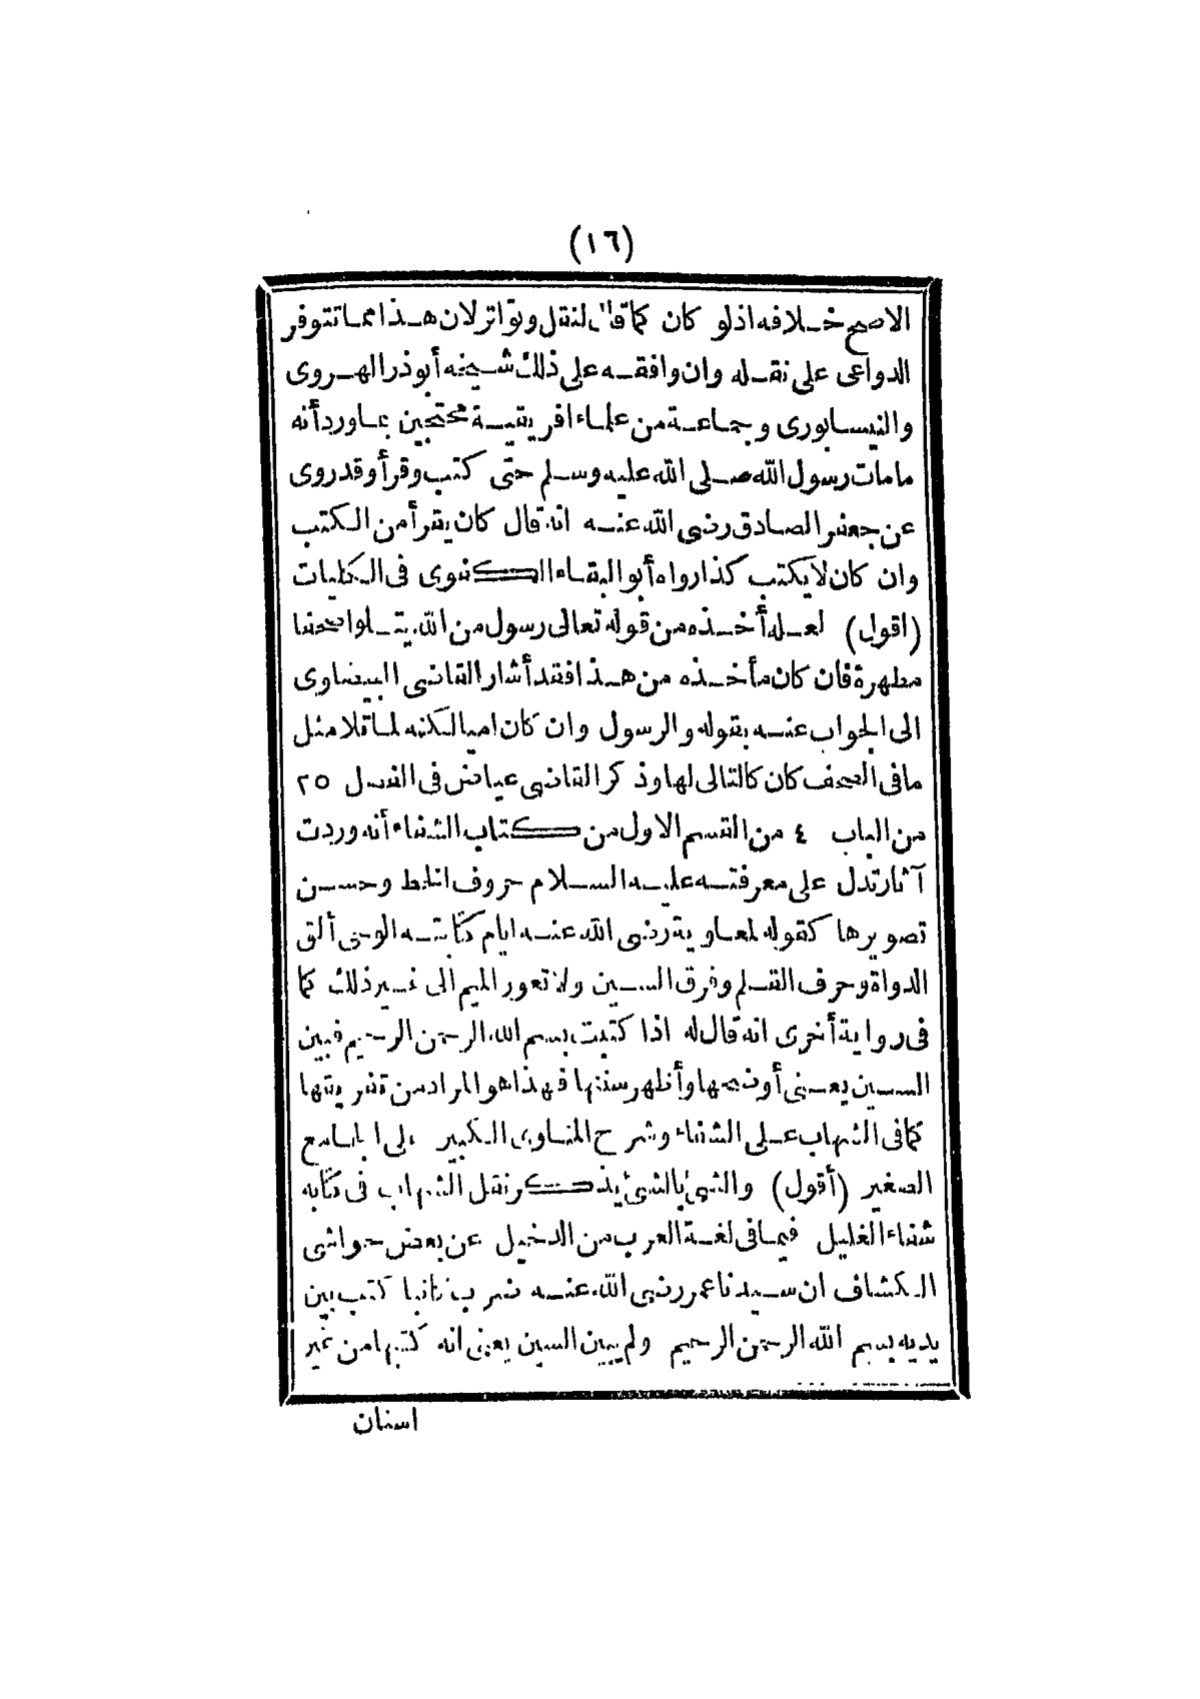 (١٦)
الاصح خلافه اذلو كان كما قال لنقل وتواتر لان هذا مما تتوفر
الدواعى على نقله وان وافقه على ذلك شيخه أبوذر الهروى
والنيسابورى وجماعة من علماء افريقية محتجين بما ورد أنه
مامات رسول الله صلى الله عليه وسلم حتى كتب وقرأ وقدروى
عن جعفر الصادق رضى الله عنه انه قال كان يقرأ من الكتب
وان كان لا يكتب كذا رواه أبو البقاء الكفوى فى الكليات
(اقول) لعله أخذه من قوله تعالى رسول من الله يتلوا صحفا
مطهرة فان كان مأخذه من هذا فقد أشار القاضى البيضاوى
الى الجواب عنه بقوله والرسول وان كان اميا لكنه لما تلا مثل
مافى الصحف كان كالتالى لها وذكر القاضى عياض فى الفصل ٢٥
من الباب ٤ من القسم الاول من كتاب الشفاء أنه وردت
آثار تدل على معرفته عليه السلام حروف الخط وحسن
تصويرها كقوله لمعاوية رضى الله عنه ايام كتابته الوحى ألق
الدواة وحرف القلم وفرق السين ولا تعور الميم الى غير ذلك كما
فى رواية أخرى انه قال له اذا كتبت بسم الله الرحمن الرحيم فبين
السين يعنى أوضحها وأظهر سننها فهذا هو المراد من تفريقها
كمافى الشهاب على الشفاء وشرح المناوى الكبير على الجامع
الصغير (أقول) والشئ بالشئ يذكر نقل الشهاب فى كتابه
شفاء الغليل فيما فى لغة العرب من الدخيل عن بعض حواشى
الكشاف ان سيدنا عمر رضى الله عنه ضرب كاتبا كتب بين
يديه بسم الله الرحمن الرحيم ولم يبين السين يعنى انه كتبها من غير
اسنان